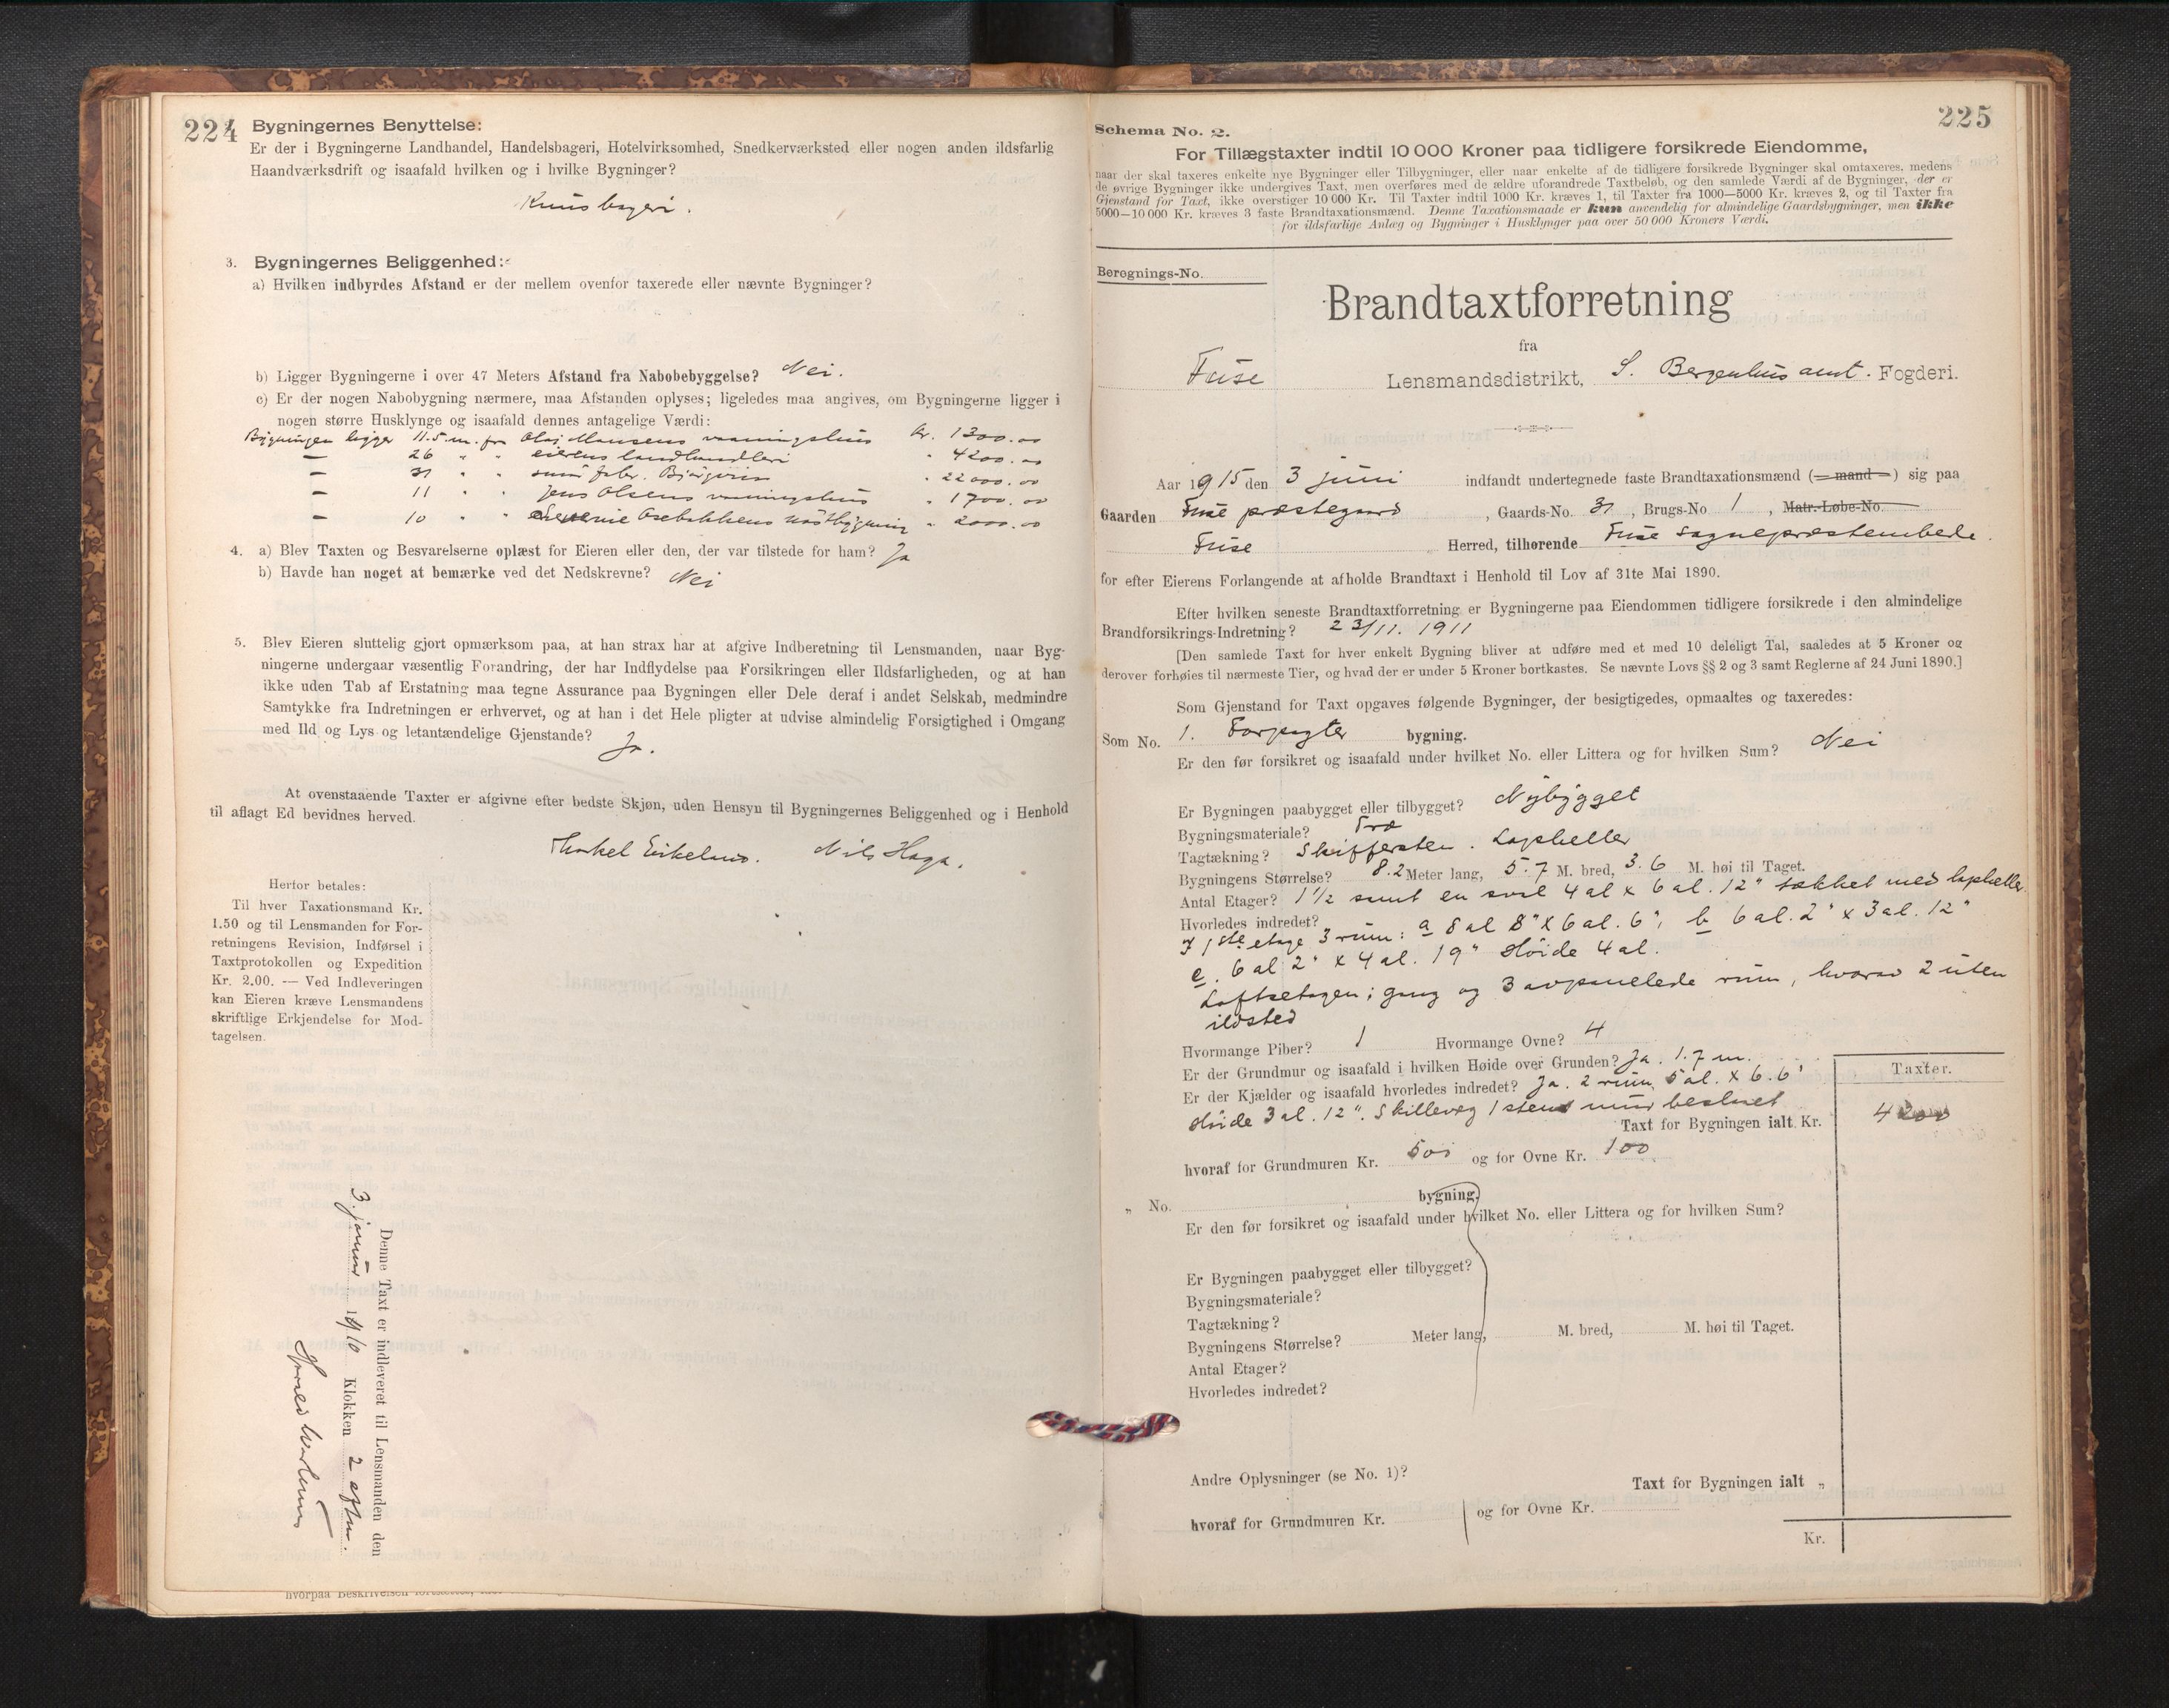 224
Bygningernes Benyttelse:
Er der i Bygningerne Landhandel, Handelsbageri, Hotelvirksomhed, Snedkerværksted eller nogen anden ildsfarlig
Haandværksdrift og isaafald hvilken og i hvilke Bygninger?
bageri.
3. Bygningernes Beliggenhed:
a) Hvilken indbyrdes Afstand er der mellem ovenfor taxerede eller nævnte Bygninger?
b) Ligger Bygningerne i over 47 Meters Afstand fra Nabobebyggelse? Nei.
c) Er der nogen Nabobygning nærmere, maa Afstanden oplyses; ligeledes maa angives, om Bygningerne ligger i
nogen større Husklynge og isaafald dennes antagelige Værdi:
Bygningen ligger 11.5 m. fra Olai Monsens vaaningshus Kr. 1300.00
— 26 " " eierens landhandleri " 4200.00
— 31 " " " 22000.00
— 11 " " Jens Olsens vaaningshus " 1700.00
— 10 " " Osebakkens " 2000.00
4. a) Blev Taxten og Besvarelserne oplæst for Eieren eller den, der var tilstede for ham? Ja
b) Havde han noget at bemærke ved det Nedskrevne? Nei
5. Blev Eieren sluttelig gjort opmærksom paa, at han strax har at afgive Indberetning til Lensmanden, naar Byg-
ningerne undergaar væsentlig Forandring, der har Indflydelse paa Forsikringen eller Ildsfarligheden, og at han
ikke uden Tab af Erstatning maa tegne Assurance paa Bygningen eller Dele deraf i andet Selskab, medmindre
Samtykke fra Indretningen er erhvervet, og at han i det Hele pligter at udvise almindelig Forsigtighed i Omgang
med Ild og Lys og letantændelige Gjenstande? Ja.
At ovenstaaende Taxter er afgivne efter bedste Skjøn, uden Hensyn til Bygningernes Beliggenhed og i Henhold
til aflagt Ed bevidnes herved.
Torkel Eikeland. Nils Haga.
Herfor betales:
Til hver Taxationsmand Kr.
1.50 og til Lensmanden for For-
retningens Revision, Indførsel i
Taxtprotokollen og Expedition
Kr. 2.00. — Ved Indleveringen
kan Eieren kræve Lensmandens
skriftlige Erkjendelse for Mod-
tagelsen.
Denne Taxt er indleveret til Lensmanden den
3. januar 1910 Klokken 2 eftm.
hvorpaa Beskrivelsen fortsættes,
225
Schema No. 2.
For Tillægstaxter indtil 10 000 Kroner paa tidligere forsikrede Eiendomme,
naar der skal taxeres enkelte nye Bygninger eller Tilbygninger, eller naar enkelte af de tidligere forsikrede Bygninger skal omtaxeres, medens
de øvrige Bygninger ikke undergives Taxt, men overføres med de ældre uforandrede Taxtbeløb, og den samlede Værdi af de Bygninger, der er
Gjenstand for Taxt, ikke overstiger 10 000 Kr. Til Taxter indtil 1000 Kr. kræves 1, til Taxter fra 1000—5000 Kr. kræves 2, og til Taxter fra
5000—10 000 Kr. kræves 3 faste Brandtaxationsmænd. Denne Taxationsmaade er kun anvendelig for almindelige Gaardsbygninger, men ikke
for ildsfarlige Anlæg og Bygninger i Husklynger paa over 50 000 Kroners Værdi.
Beregnings-No.
Brandtaxtforretning
fra
Fuse Lensmandsdistrikt, S. Bergenhus amt. Fogderi.
Aar 1915 den 3 juni indfandt undertegnede faste Brandtaxationsmænd (— mand —) sig paa
Gaarden Fuse præstegaard, Gaards-No. 31, Brugs-No 1, Matr.-Løbe-No.
Fuse Herred, tilhørende Fuse sogneprestembede.
for efter Eierens Forlangende at afholde Brandtaxt i Henhold til Lov af 31te Mai 1890.
Efter hvilken seneste Brandtaxtforretning er Bygningerne paa Eiendommen tidligere forsikrede i den almindelige
Brandforsikrings-Indretning? 23/11. 1911
[Den samlede Taxt for hver enkelt Bygning bliver at udføre med et med 10 deleligt Tal, saaledes at 5 Kroner og
derover forhøies til nærmeste Tier, og hvad der er under 5 Kroner bortkastes. Se nævnte Lovs §§ 2 og 3 samt Reglerne af 24 Juni 1890.]
Som Gjenstand for Taxt opgaves følgende Bygninger, der besigtigedes, opmaaltes og taxeredes:
Som No. 1. Forpagter bygning.
Er den før forsikret og isaafald under hvilket No. eller Littera og for hvilken Sum? Nei
Er Bygningen paabygget eller tilbygget? Nybygget
Bygningsmateriale? Træ
Tagtækning? Skiffersten. Lapheller
Bygningens Størrelse? 8.2 Meter lang, 5.7 M. bred, 3.6 M. høi til Taget.
Antal Etager? 1½ samt en sval 4 al x 6 al. 12" tækket med lapheller
Hvorledes indredet?
I 1ste etage 3 rum: a 8 al 8" x 6 al. 6", b 6 al. 2" x 3 al. 12"
c. 6 al 2" x 4 al. 19" Høide 4 al.
Loftsetagen; gang og 3 avpanelede rum, hvorav 2 uten
ildsted
Hvormange Piber? 1 Hvormange Ovne? 4
Er der Grundmur og isaafald i hvilken Høide over Grunden? Ja. 1.7 m.
Er der Kjælder og isaafald hvorledes indredet? Ja. 2 rum, 5 al. x 6.6"
Høide 3 al. 12". Skillevæg 1 stens mur
Taxter.
Taxt for Bygningen ialt Kr. 4200
hvoraf for Grundmuren Kr. 500 og for Ovne Kr. 100
„ No. bygning.
Er den før forsikret og isaafald under hvilket No. eller Littera og for hvilken Sum?
Er Bygningen paabygget eller tilbygget?
Bygningsmateriale?
Tagtækning?
Bygningens Størrelse? Meter lang, M. bred, M. høi til Taget.
Antal Etager?
Hvorledes indredet?
Andre Oplysninger (se No. 1)?
Taxt for Bygningen ialt „
hvoraf for Grundmuren Kr. og for Ovne Kr.
Kr.